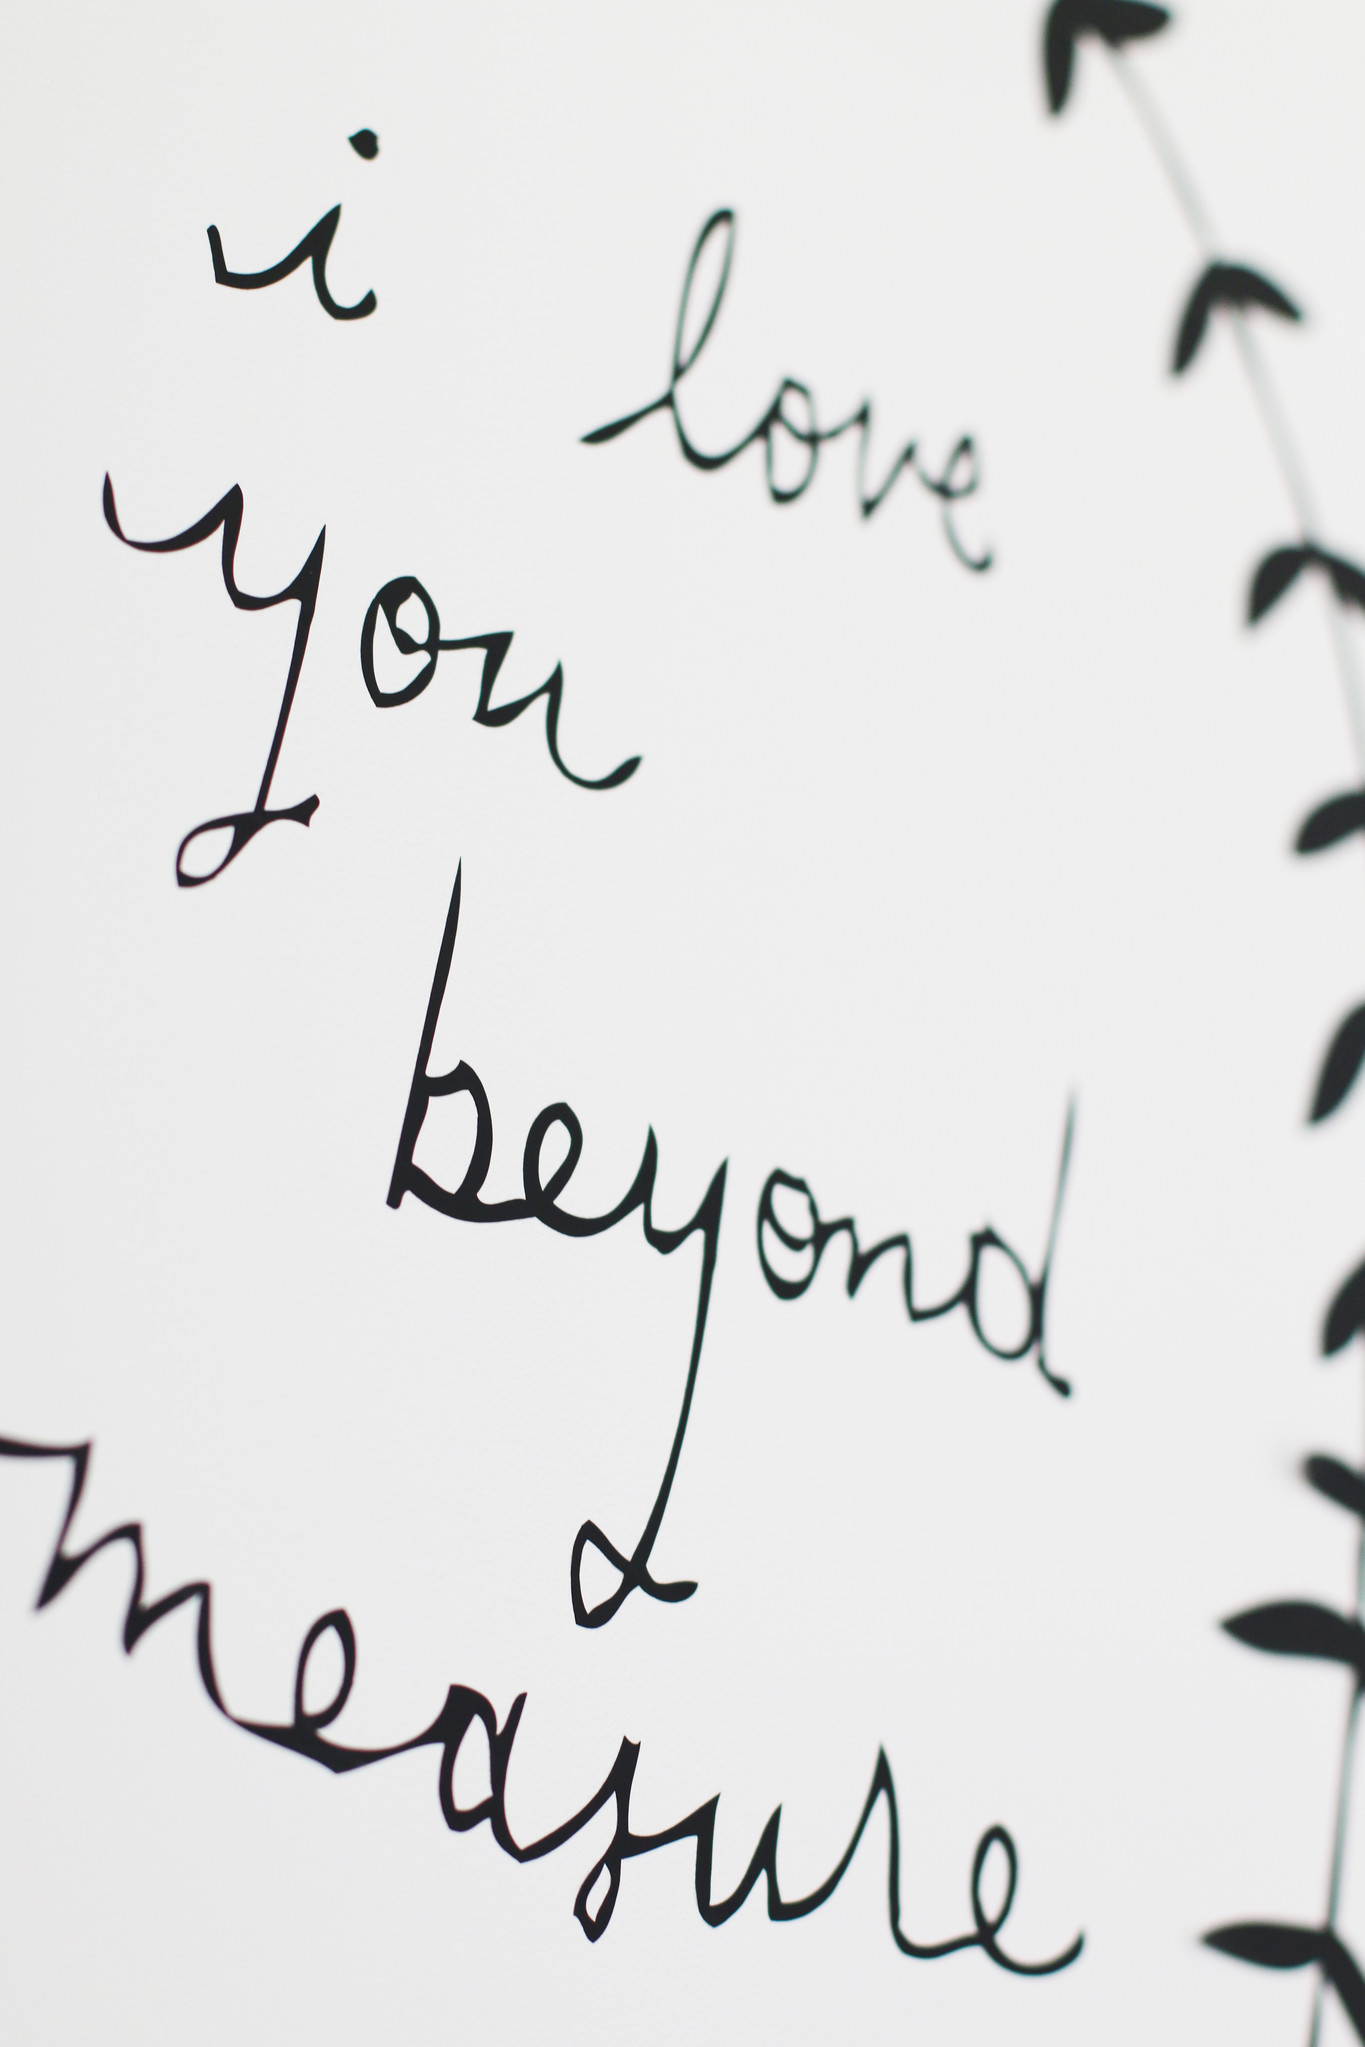 i love
you
beyond
measure